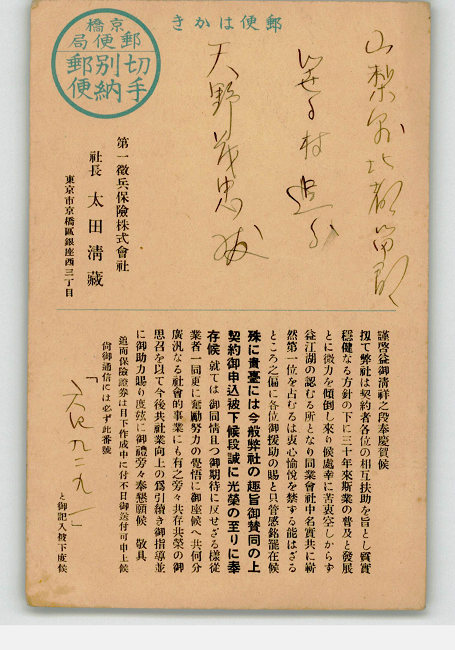 郵便はかき
京橋
郵便局
切手
別納
郵便
山梨縣北都留郡
笹子村追分
天野茂忠殿
第一徴兵保險株式會社
社長 太田淸藏
東京市京橋區銀座西三丁目
謹啓益御淸祥之段奉慶賀候
扨て弊社は契約者各位の相互扶助を旨とし質實
穩健なる方針の下に三十年來斯業の普及と發展
とに微力を傾倒し來り候處幸に苦衷空しからず
益江湖の認むる所となり同業會社中名實共に嶄
然第一位を占むるは衷心愉悅を禁ずる能はざる
ところ之偏に各位御援助の賜と只管感銘罷在候
殊に貴臺には今般弊社の趣旨御贊同の上
契約御申込被下候段誠に光榮の至りに奉
存候 就ては御同情且つ御期待に反せざる樣從
業者一同更に奮勵努力の覺悟に御座候へ共何分
廣汎なる社會的事業にも有之旁々共存共榮の御
思召を以て今後共社業向上の爲引續き御指導並
に御助力賜り度玆に御禮旁々奉懇願候 敬具
追而保險證券は目下作成中に付不日御送付可申上候
尙御通信には必ず此番號
と御記入被下度候